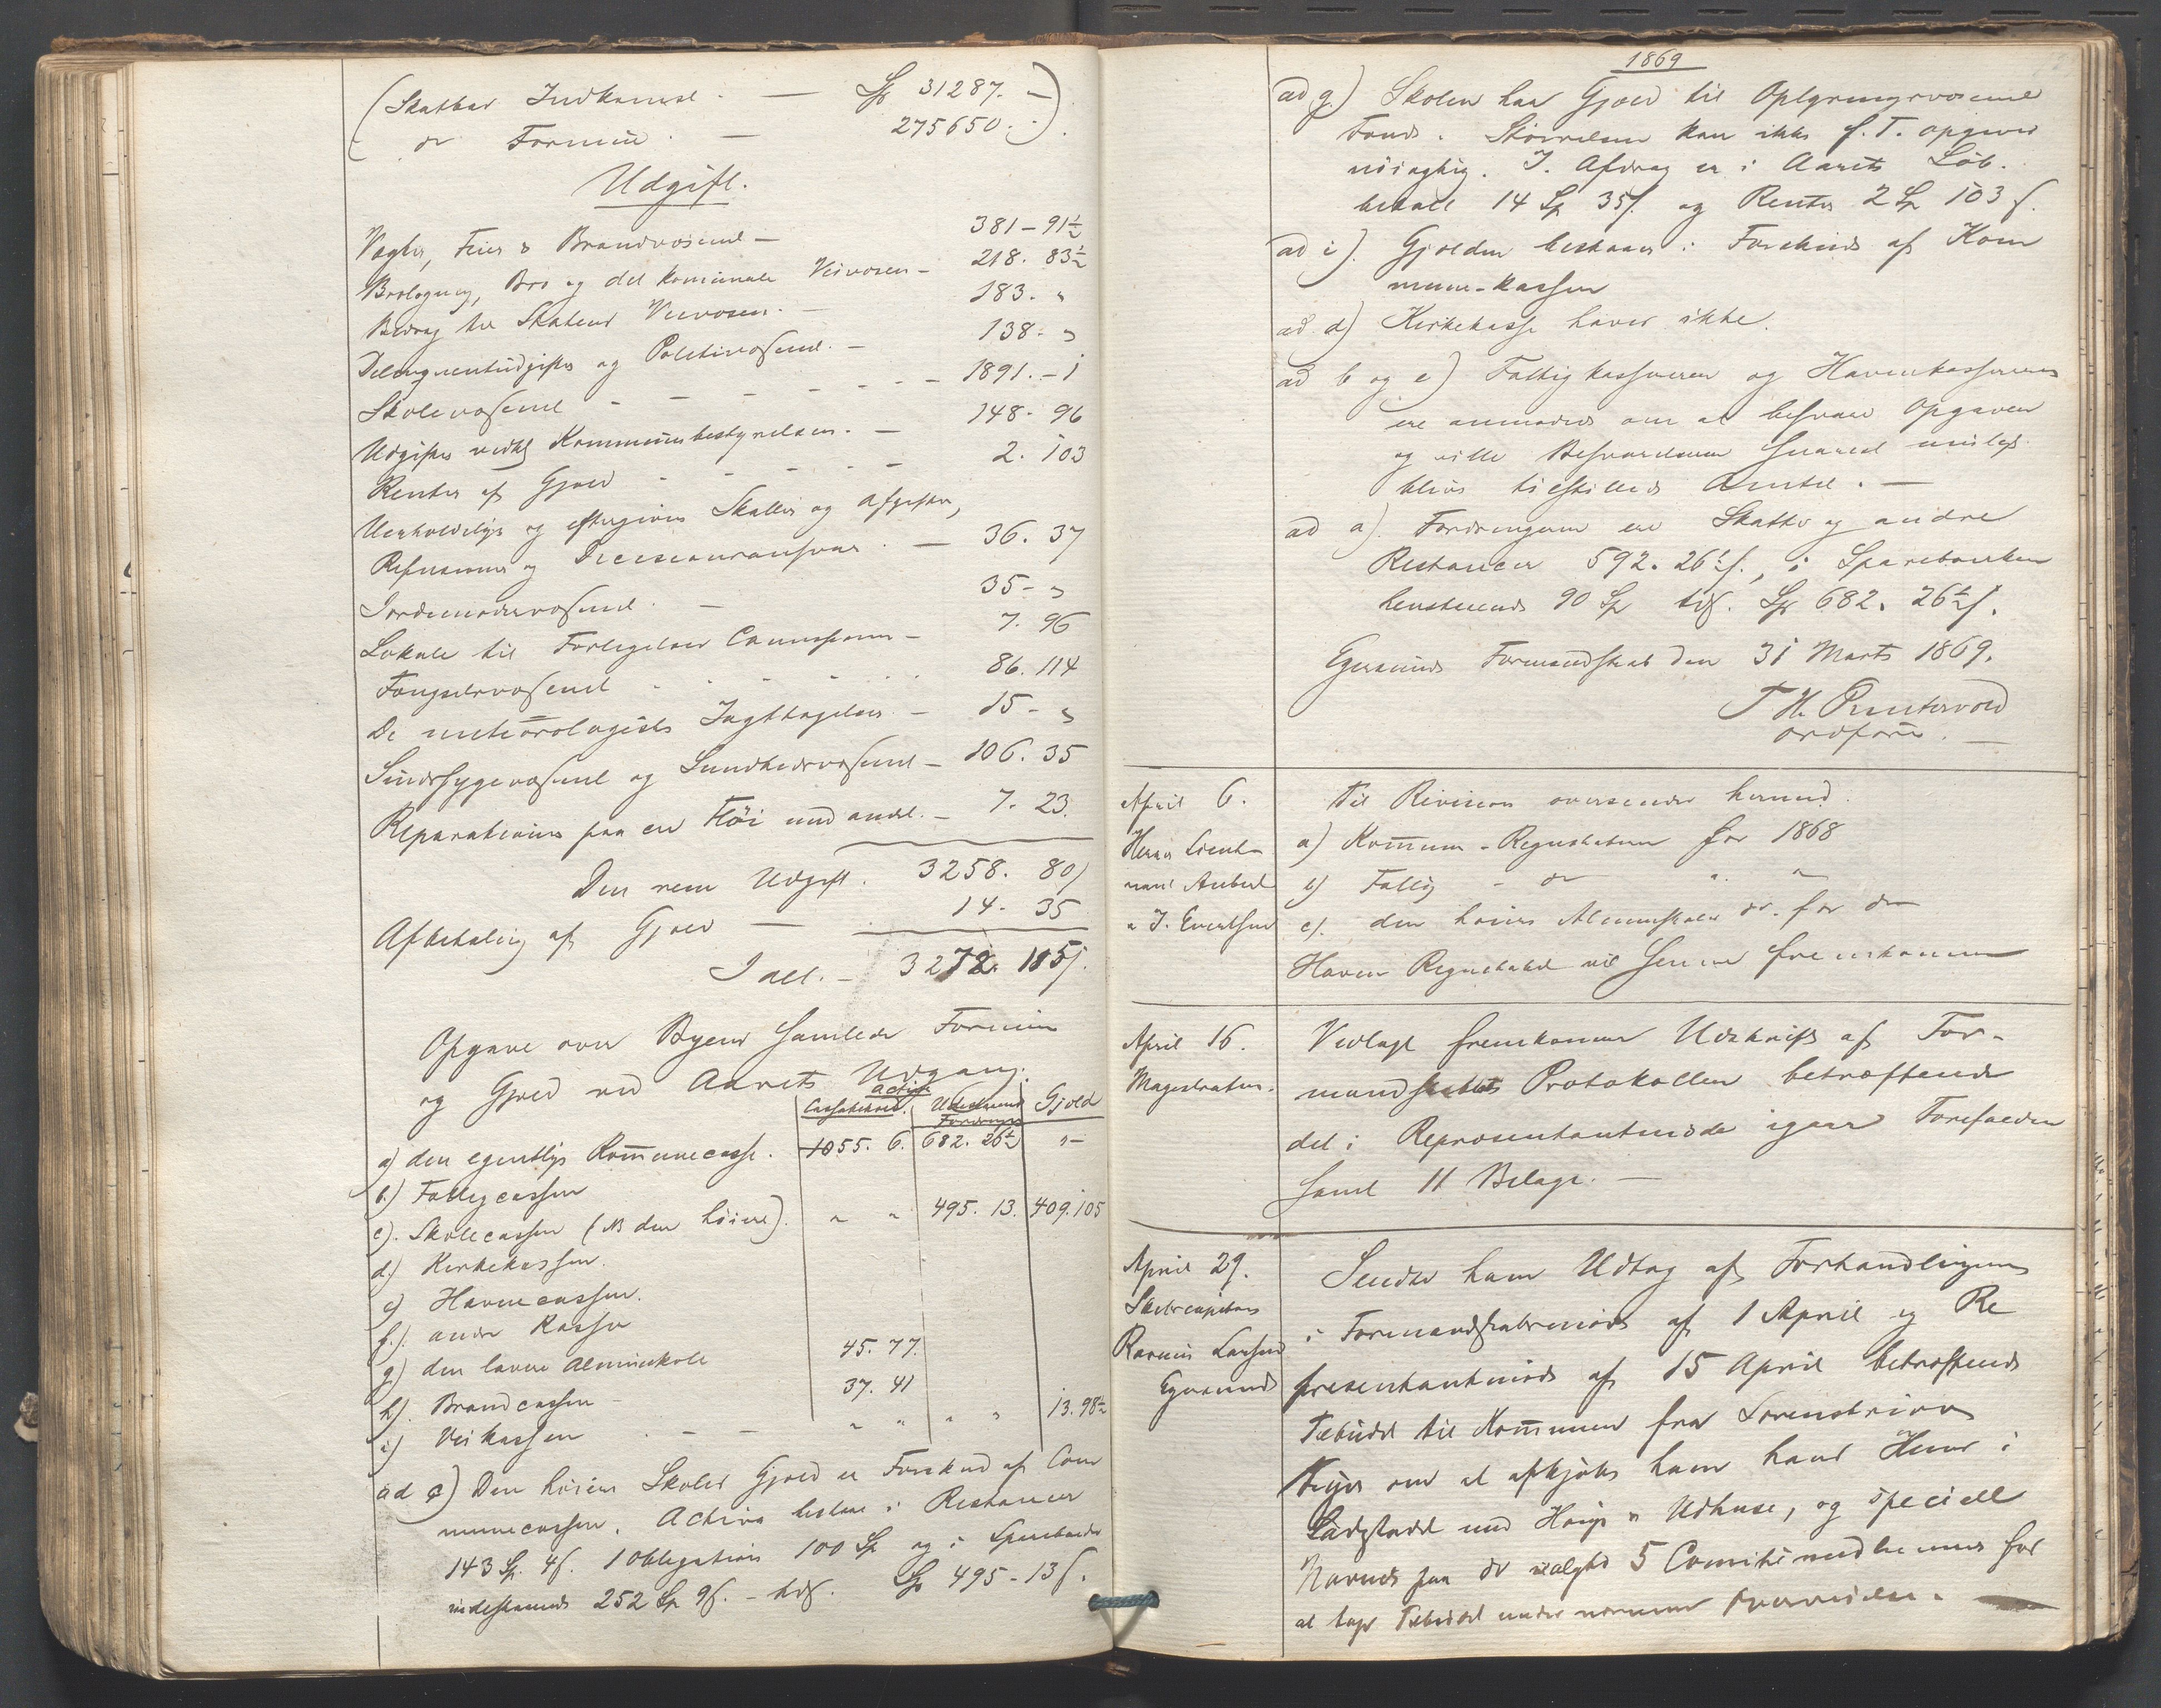 (Skatbar Indkomst. — Sp 31287. —)
( do Formue. — 275650. -).
Udgift.
Vægter, Feier & Brandvæsenet — 381-91½
Brolægning, Bro og det kommunale Veivæsen — 218. 83½
Bidrag til Statens Veivæsen. — 183. "
Delinqventudgifter og Politivæsenet. — 138- "
Skolevæsenet - - - - - - 1891. - 1
Udgifter vedk Kommunebestyrelsen. — 148- 96
Renter af Gjæld - - - - - 2. 103
Uerholdelige og eftergivne Skatter og Afgifter,
Refusioner og Decisionsansvar. — 36. 37
Jordemodervæsenet. — 35- "
Lokale til Forligelses Commission — 7. 96
Fængselsvæsenet . . . . . 86. 114
De meteorologiske Iagttagelser. — 15- "
Sindssygevæsenet og Sundhedsvæsenet — 106. 35
Reparationer paa en Høi med andet. — 7. 23.
Den rene Udgift. 3258. 80/
Afbetaling af Gjæld — 14. 35
Ialt. — 3272. 115/.
Opgave over Byens samlede Formue
og Gjæld ved Aarets Udgang.
Activa
Cassabehold. Udestaaende Fordringer Gjæld
a) den egentlige Kommunecasse. 1055. 6. 682. 26½ "-
b) Fattigcassen
c). Skolecassen (NB den høiere). " " 495. 13. 409. 105
d.) Kirkekassen.
e) Havnecassen.
f.). andre Kasser
g) den lavere Almueskole 45. 77.
h). Brandcassen - 37. 41
i) Veikassen . - - " " " " 13. 98½
ad c) Den høiere Skoles Gjæld er Forskud af Com
munecassen. Activa bestaar i Restancer
143 Sp. 4 s. 1 Obligation 100 Sp og i Sparebanken
indestaaende 252 Sp 9 s. - tils. Sp 495-13 s.
1869
ad g.) Skolen har Gjæld til Oplysningsvæsenets
Fond. Størrelsen kan ikke f. T. opgives
nöiagtig. I Afdrag er i Aarets Løb.
betalt 14 Sp 35 s. og Renter 2 Sp 103 s.
ad i). Gjælden bestaaer i Forskud af Kom
mune-kassen
ad d) Kirkekasse haves ikke.
ad b og e) Fattigkassereren og Havnekassereren
ere anmodede om at besvare Opgaven
og ville Besvarelserne snarest muligt
blive tilstillede Amtet. —
ad a). Fordringerne ere Skatte og andre
Restancer 592. 26½ s., i Sparebanken
henstaaende 90 Sp tils. Sp 682. 26½ s.
Egersunds Formandskab den 31 Marts 1869.
T H. Puntervold
ordfører. —
April 6.
Herrer Lieut-
nant Aubert
& J. Evertsen
Til Revision oversendes hermed
a) Kommune-Regnskabet for 1868
b) Fattig - do " "
c). den høiere Almueskoles do. for do
Havne Regnskabet vil senere fremkomme
April 16.
Magistraten.
Vedlagt fremkommer Udskrift af For-
mandskabets Protokollen betræffende
det i Repræsentantmøde igaar Forefaldne
samt 11 Bilage. —
April 29.
Skibscapitain
Rasmus Larsen
Egersund
Sendes ham Udtog af Forhandlingerne
i Formandskabsmøde af 1 April og Re
presentantmøde af 15 April betræffende
Tilbudet til Kommunen fra Sorenskriver
om at afkjøbe ham hans Huus i
med Have & Udhuse, og specielt
Navnet paa de valgte 5 Comitémedlemmer for
at tage Tilbudet under nærmere Overveielse. —